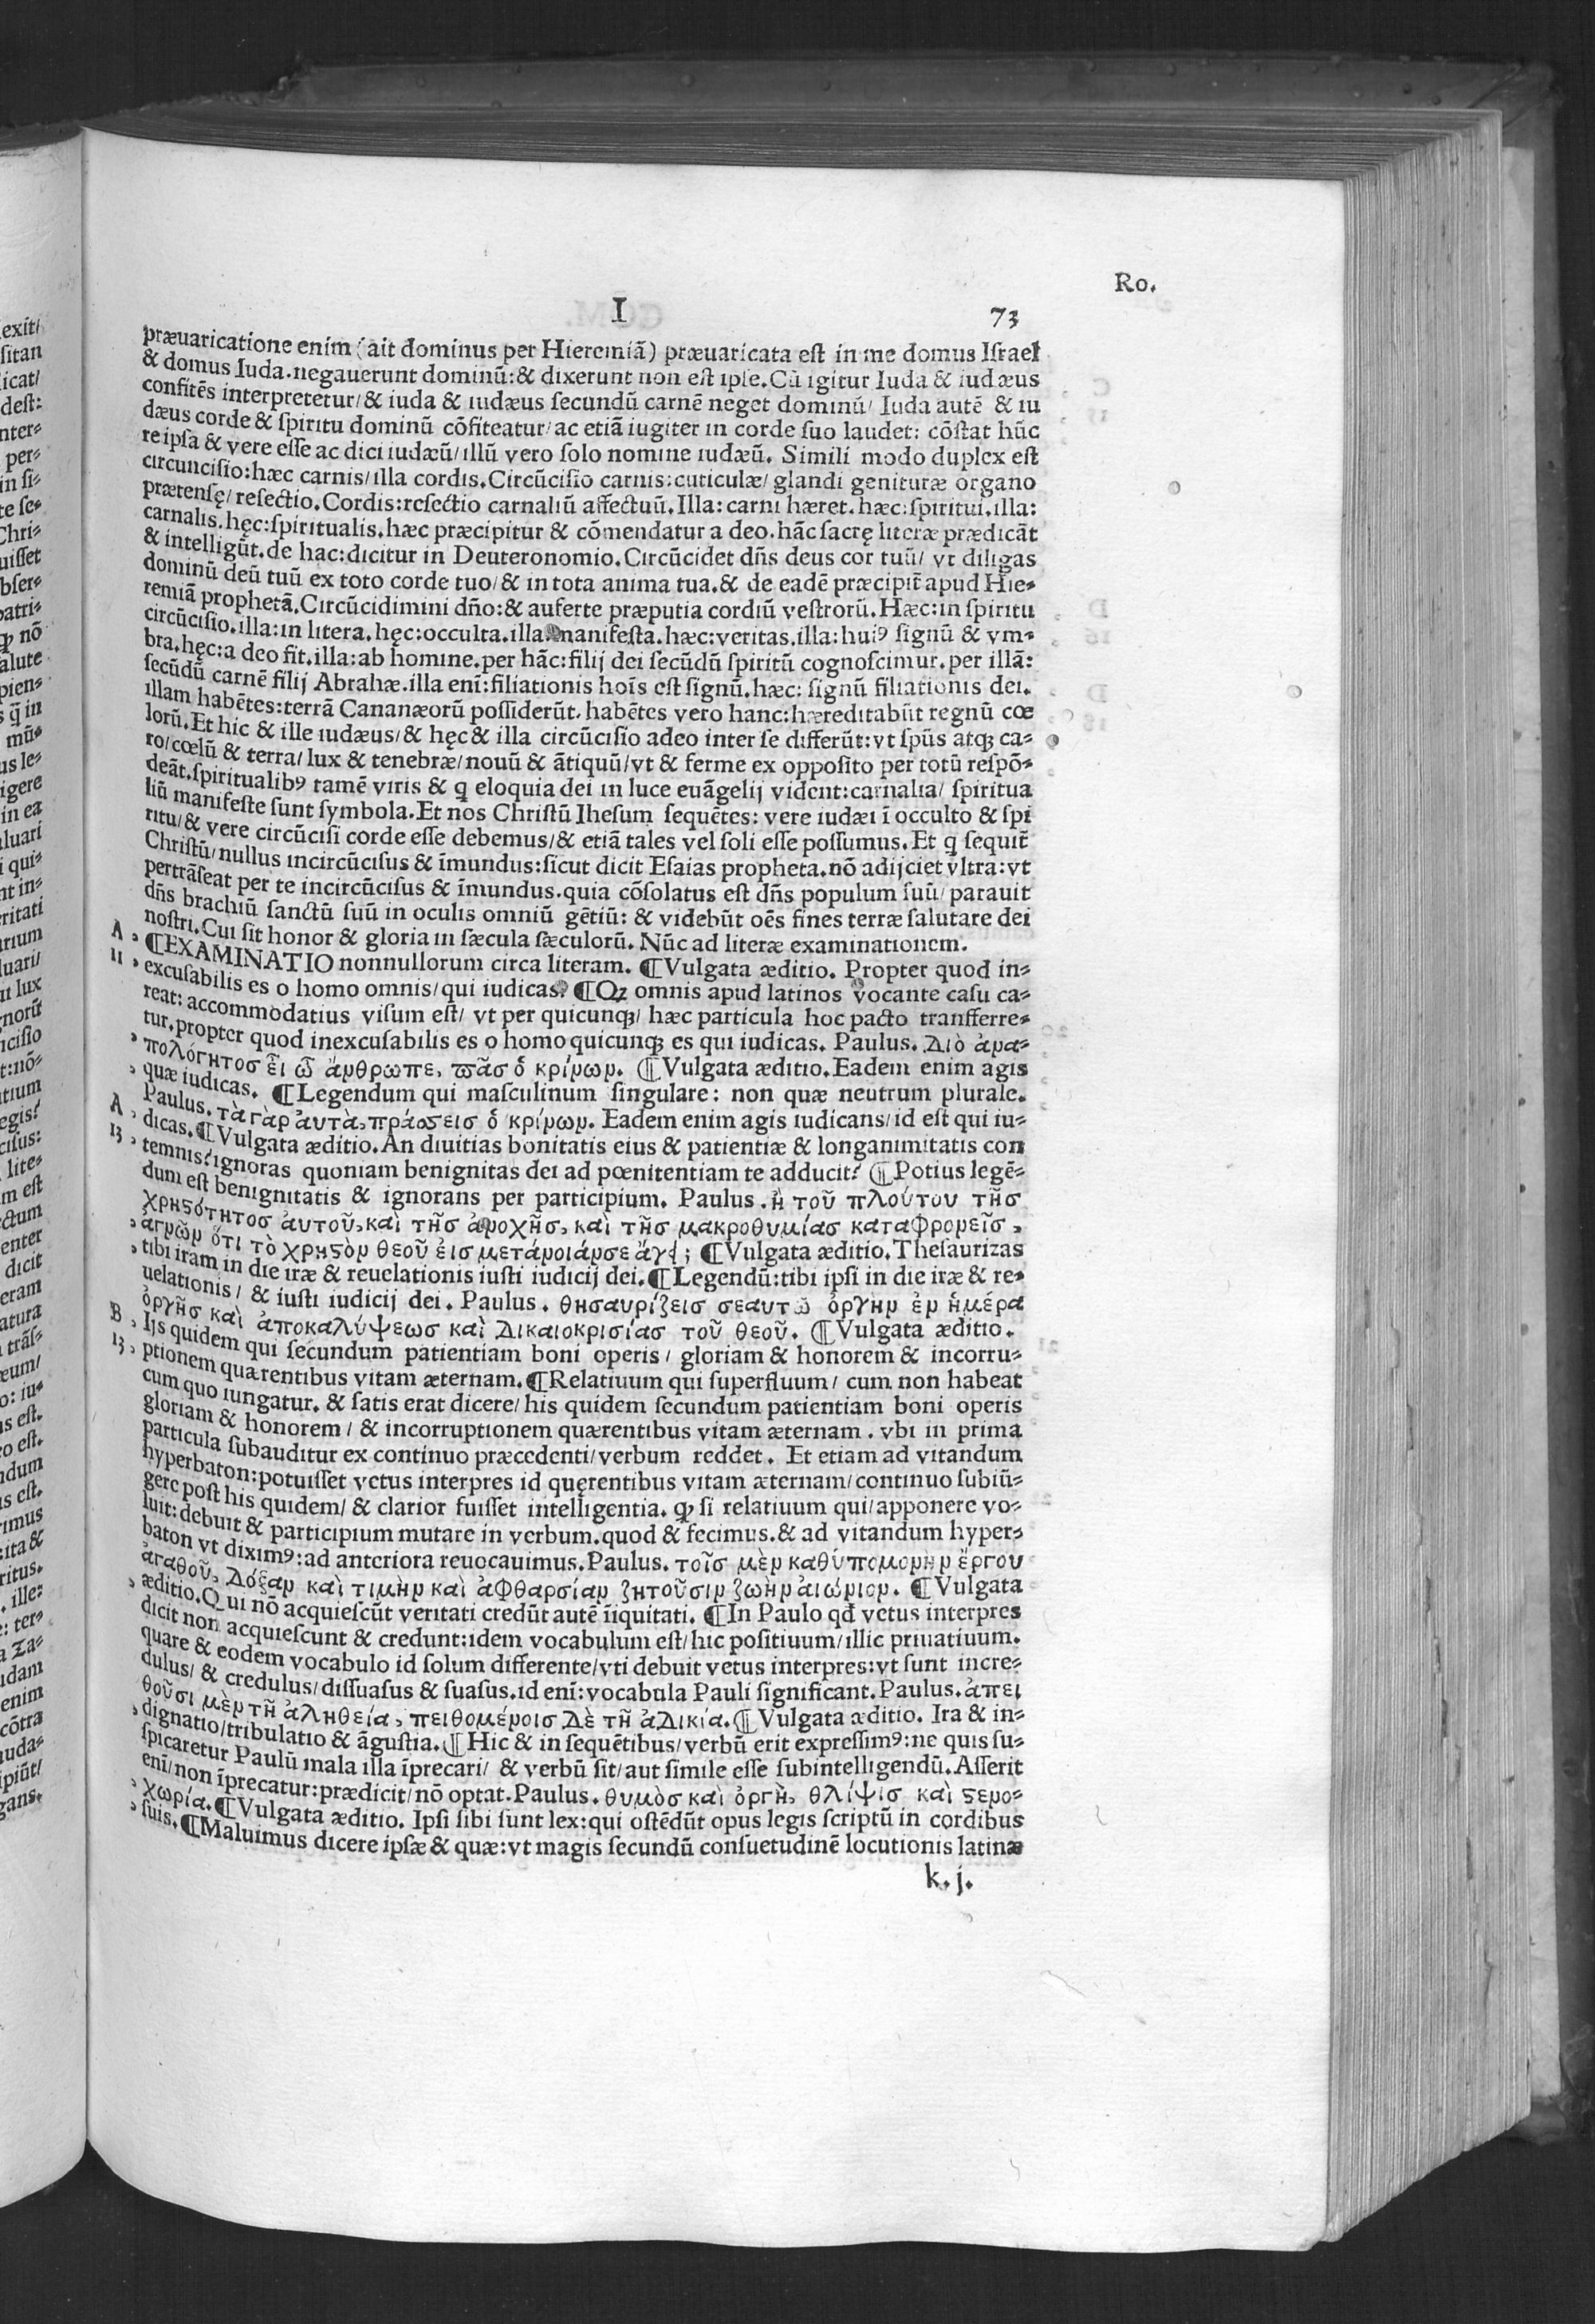 Ro.
I
73
præuaricatione enim (ait dominus per Hieremiã) præuaricata est in me domus Israel
& domus Iuda. negauerunt dominũ: & dixerunt non est ipse. Cũ igitur Iuda & iudæus
confitẽs interpretetur/ & iuda & iudæus secundũ carnẽ neget dominũ/ Iuda autẽ & iu
dæus corde & spiritu dominũ cõfiteatur/ ac etiã iugiter in corde suo laudet: cõstat hũc
re ipsa & vere esse ac dici iudæũ/ illũ vero solo nomine iudæũ. Simili modo duplex est
circuncisio: hæc carnis/ illa cordis. Circũcisio carnis: cuticulæ/ glandi genituræ organo
prætensę/ resectio. Cordis: resectio carnaliũ affectuũ. Illa: carni hæret. hæc: spiritui. illa:
carnalis. hęc: spiritualis. hæc præcipitur & cõmendatur a deo. hãc sacrę literæ prædicãt
& intelligũt. de hac: dicitur in Deuteronomio. Circũcidet dñs deus cor tuũ/ vt diligas
dominũ deũ tuũ ex toto corde tuo/ & in tota anima tua. & de eadẽ præcipit̃ apud Hie-
remiã prophetã. Circũcidimini dño: & auferte præputia cordiũ vestrorũ. Hæc: in spiritu
circũcisio. illa: in litera. hęc: occulta. illa: manifesta. hæc: veritas. illa: huiꝰ signũ & vm-
bra. hęc: a deo fit. illa: ab homine. per hãc: filij dei secũdũ spiritũ cognoscimur. per illã:
secũdũ carnẽ filij Abrahæ. illa enĩ: filiationis hoĩs est signũ. hæc: signũ filiationis dei.
illam habẽtes: terrã Cananæorũ possiderũt. habẽtes vero hanc: hæreditabũt regnũ cœ
lorũ. Et hic & ille iudæus/ & hęc & illa circũcisio adeo inter se differũt: vt spũs atqꝫ ca-
ro/ cœlũ & terra/ lux & tenebræ/ nouũ & ãtiquũ/ vt & ferme ex opposito per totũ respõ-
deãt. spiritualibꝰ tamẽ viris & q̃ eloquia dei in luce euãgelij vident: carnalia/ spiritua
liũ manifeste sunt symbola. Et nos Christũ Ihesum sequẽtes: vere iudæi ĩ occulto & spi
ritu/ & vere circũcisi corde esse debemus/ & etiã tales vel soli esse possumus. Et q̃ sequit̃
Christũ/ nullus incircũcisus & ĩmundus: sicut dicit Esaias propheta. nõ adijciet vltra: vt
pertrãseat per te incircũcisus & ĩmundus. quia cõsolatus est dñs populum suũ/ parauit
dñs brachiũ sanctũ suũ in oculis omniũ gẽtiũ: & videbũt oẽs fines terræ salutare dei
nostri. Cui sit honor & gloria in sæcula sæculorũ. Nũc ad literæ examinationem.
A ¶EXAMINATIO nonnullorum circa literam. ¶Vulgata æditio. Propter quod in-
11 excusabilis es o homo omnis/ qui iudicas? ¶Qꝫ omnis apud latinos vocante casu ca-
reat: accommodatius visum est/ vt per quicunqꝫ/ hæc particula hoc pacto transferre-
tur. propter quod inexcusabilis es o homo quicunqꝫ es qui iudicas. Paulus. Διὸ ἀνα-
πολόγητοσ εἶ ὦ ἄνθρωπε, πᾶσ ὁ κρίνων. ¶Vulgata æditio. Eadem enim agis
quæ iudicas. ¶Legendum qui masculinum singulare: non quæ neutrum plurale.
Paulus. τὰ γὰρ ἀυτὰ, πράσσεισ ὁ κρίνων. Eadem enim agis iudicans/ id est qui iu-
A dicas. ¶Vulgata æditio. An diuitias bonitatis eius & patientiæ & longanimitatis con
13 temnis? ignoras quoniam benignitas dei ad pœnitentiam te adducit? ¶Potius legẽ-
dum est benignitatis & ignorans per participium. Paulus. ἢ τοῦ πλούτου τῆσ
χρηστότητοσ ἀυτοῦ, καὶ τῆσ ἀνοχῆσ, καὶ τῆσ μακροθυμίασ καταφρονεῖσ,
ἀγνῶν ὅτι τὸ χρηστὸν θεοῦ ἐισ μετάνοιάνσε ἄγει; ¶Vulgata æditio. Thesaurizas
tibi iram in die iræ & reuelationis iusti iudicij dei. ¶Legendũ: tibi ipsi in die iræ & re-
uelationis/ & iusti iudicij dei. Paulus. θησαυρίζεισ σεαυτῶ ὀργὴν ἐν ἡμέρα
ὀργῆσ καὶ ἀποκαλύψεωσ καὶ Δικαιοκρισίασ τοῦ θεοῦ. ¶Vulgata æditio.
B Ijs quidem qui secundum patientiam boni operis/ gloriam & honorem & incorru-
13 ptionem quærentibus vitam æternam. ¶Relatiuum qui superfluum/ cum non habeat
cum quo iungatur. & satis erat dicere/ his quidem secundum patientiam boni operis
gloriam & honorem/ & incorruptionem quærentibus vitam æternam. vbi in prima
particula subauditur ex continuo præcedenti/ verbum reddet. Et etiam ad vitandum
hyperbaton: potuisset vetus interpres id quęrentibus vitam æternam/ continuo subiũ-
gere post his quidem/ & clarior fuisset intelligentia. qꝫ si relatiuum qui/ apponere vo-
luit: debuit & participium mutare in verbum. quod & fecimus. & ad vitandum hyper-
baton vt diximꝰ: ad anteriora reuocauimus. Paulus. τοῖσ μὲν καθ᾽ὑπομονὴν ἔργου
ἀγαθοῦ, Δόξαν καὶ τιμὴν καὶ ἀφθαρσίαν ζητοῦσιν ζωὴν ἀιώνιον. ¶Vulgata
æditio. Qui nõ acquiescũt veritati credũt autẽ ĩiquitati. ¶In Paulo qđ vetus interpres
dicit non acquiescunt & credunt: idem vocabulum est/ hic positiuum/ illic priuatiuum.
quare & eodem vocabulo id solum differente/ vti debuit vetus interpres: vt sunt incre-
dulus/ & credulus/ dissuasus & suasus. id enĩ: vocabula Pauli significant. Paulus. ἀπει
θοῦσι μὲν τῆ ἀληθεία, πειθομένοισ Δὲ τῆ ἀΔικία. ¶Vulgata æditio. Ira & in-
dignatio/ tribulatio & ãgustia. ¶Hic & in sequẽtibus/ verbũ erit expressimꝰ: ne quis su-
spicaretur Paulũ mala illa ĩprecari/ & verbũ sit/ aut simile esse subintelligendũ. Asserit
enĩ/ non ĩprecatur: prædicit/ nõ optat. Paulus. θυμὸσ καὶ ὀργὴ, θλίψισ καὶ στενο-
χωρία. ¶Vulgata æditio. Ipsi sibi sunt lex: qui ostẽdũt opus legis scriptũ in cordibus
suis. ¶Maluimus dicere ipsæ & quæ: vt magis secundũ consuetudinẽ locutionis latinæ
k. j.